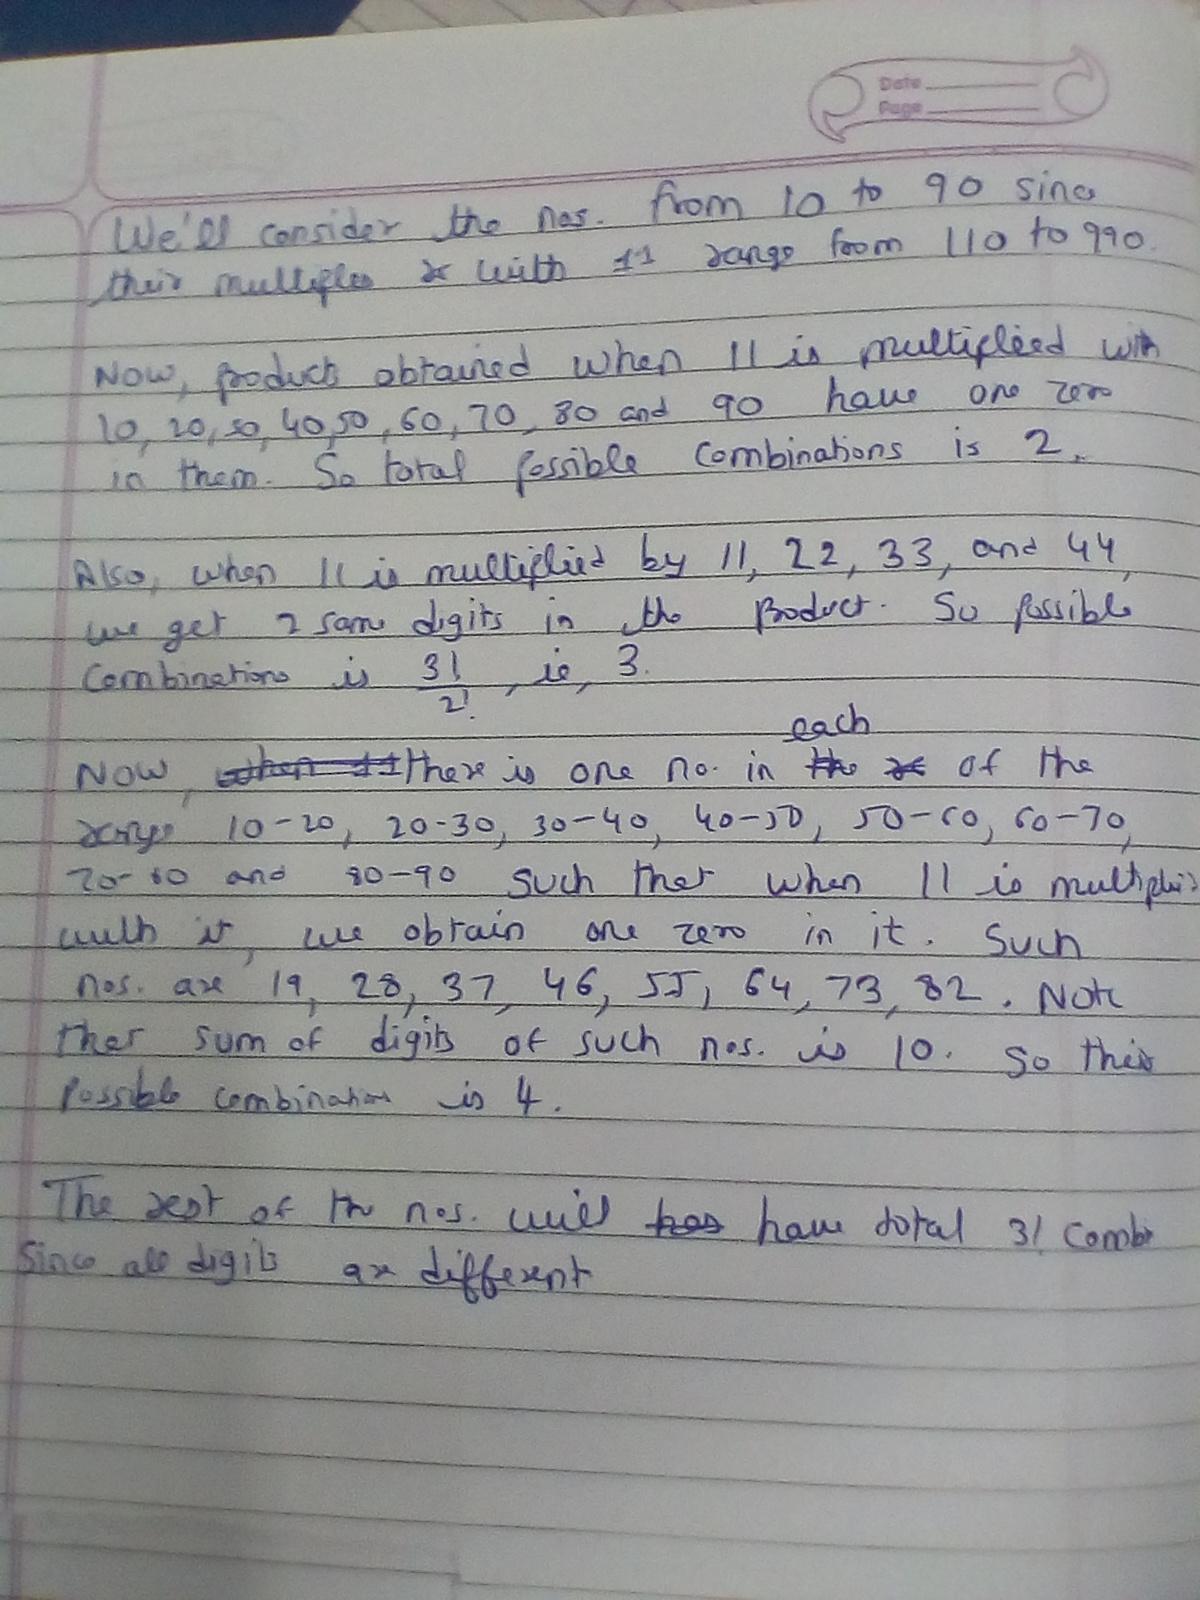 Date
Page
We'll consider the nos. from 10 to 90 since
their multiples with 11 range from 110 to 990.
Now, products obtained when 11 is multiplied with
10, 20, 30, 40, 50, 60, 70, 80 and 90 have one zero
in them. So total possible combinations is 2.
Also, when 11 is multiplied by 11, 22, 33, and 44,
we get 2 same digits in the product. So possible
combinations is 3!/2!, ie, 3.
each
Now, there is one no. in of the
range 10-20, 20-30, 30-40, 40-50, 50-60, 60-70,
70-80 and 80-90 such that when 11 is
with it, we obtain one zero in it. Such
nos. are 19, 28, 37, 46, 55, 64, 73, 82. Note
that sum of digits of such nos. is 10. So their
possible combinations is 4.
The rest of the nos. will have total 3! combi
since all digits are different